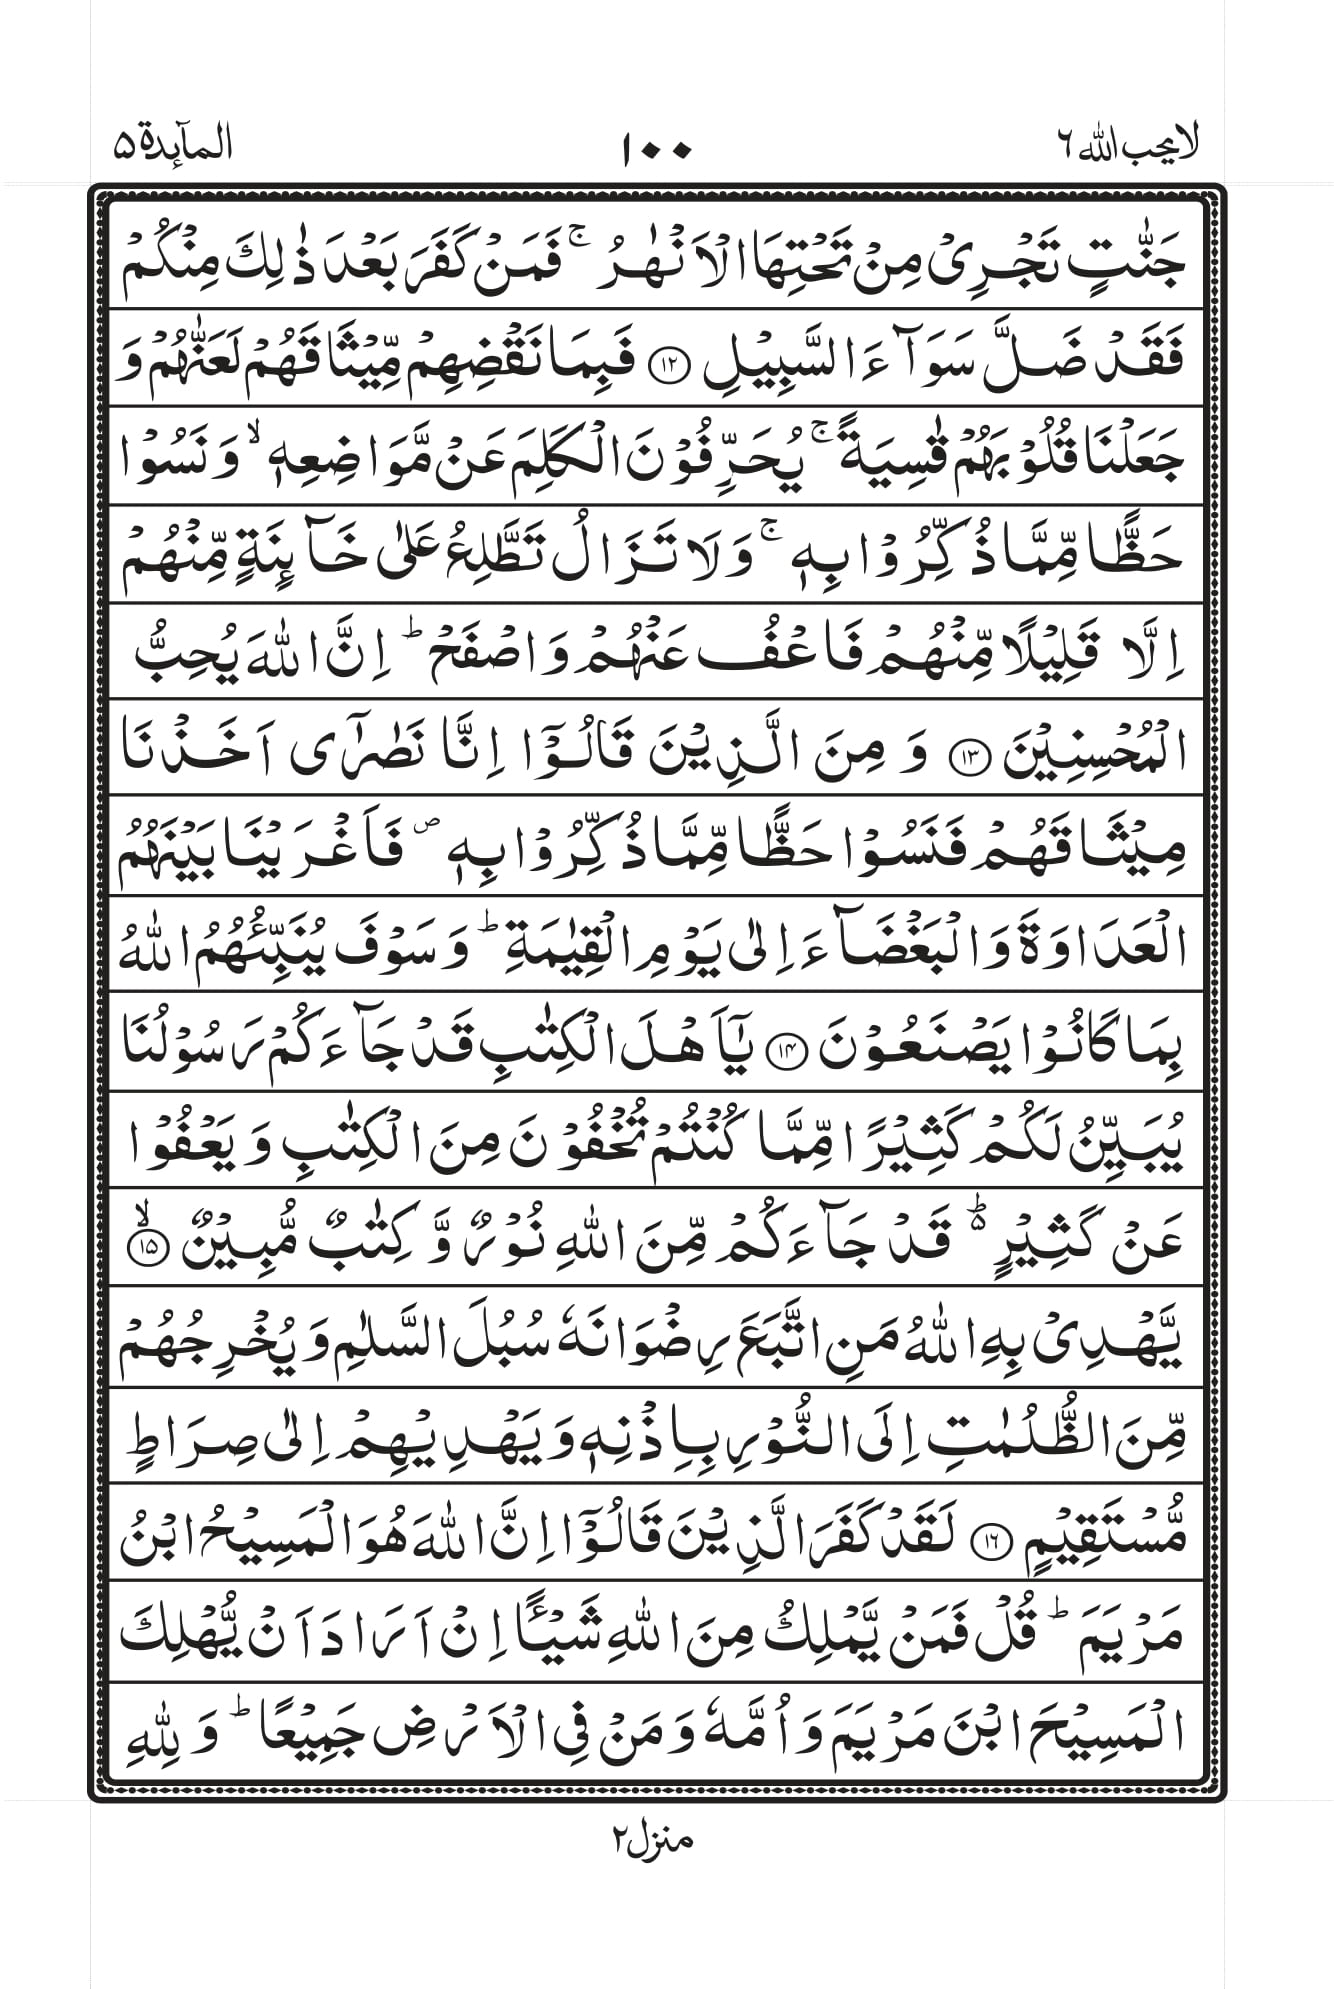 لا يحب الله ٦ ١٠٠ المآئدة ٥
جَنّٰتٍ تَجْرِىْ مِنْ تَحْتِهَا الْاَنْهٰرُ ۚ فَمَنْ كَفَرَ بَعْدَ ذٰلِكَ مِنْكُمْ
فَقَدْ ضَلَّ سَوَآءَ السَّبِيْلِ ﴿۱۲﴾ فَبِمَا نَقْضِهِمْ مِّيْثَاقَهُمْ لَعَنّٰهُمْ وَ
جَعَلْنَا قُلُوْبَهُمْ قٰسِيَةً ۚ يُحَرِّفُوْنَ الْكَلِمَ عَنْ مَّوَاضِعِهٖ ۙ وَنَسُوْا
حَظًّا مِّمَّا ذُكِّرُوْا بِهٖ ۚ وَلَا تَزَالُ تَطَّلِعُ عَلٰى خَآئِنَةٍ مِّنْهُمْ
اِلَّا قَلِيْلًا مِّنْهُمْ فَاعْفُ عَنْهُمْ وَاصْفَحْ ؕ اِنَّ اللّٰهَ يُحِبُّ
الْمُحْسِنِيْنَ ﴿۱۳﴾ وَمِنَ الَّذِيْنَ قَالُوْٓا اِنَّا نَصٰرٰٓى اَخَذْنَا
مِيْثَاقَهُمْ فَنَسُوْا حَظًّا مِّمَّا ذُكِّرُوْا بِهٖ ۪ فَاَغْرَيْنَا بَيْنَهُمُ
الْعَدَاوَةَ وَالْبَغْضَآءَ اِلٰى يَوْمِ الْقِيٰمَةِ ؕ وَسَوْفَ يُنَبِّئُهُمُ اللّٰهُ
بِمَا كَانُوْا يَصْنَعُوْنَ ﴿۱۴﴾ يٰٓاَهْلَ الْكِتٰبِ قَدْ جَآءَكُمْ رَسُوْلُنَا
يُبَيِّنُ لَكُمْ كَثِيْرًا مِّمَّا كُنْتُمْ تُخْفُوْنَ مِنَ الْكِتٰبِ وَيَعْفُوْا
عَنْ كَثِيْرٍ ؕ۵ قَدْ جَآءَكُمْ مِّنَ اللّٰهِ نُوْرٌ وَّكِتٰبٌ مُّبِيْنٌ ۙ﴿۱۵﴾
يَّهْدِىْ بِهِ اللّٰهُ مَنِ اتَّبَعَ رِضْوَانَهٗ سُبُلَ السَّلٰمِ وَيُخْرِجُهُمْ
مِّنَ الظُّلُمٰتِ اِلَى النُّوْرِ بِاِذْنِهٖ وَيَهْدِيْهِمْ اِلٰى صِرَاطٍ
مُّسْتَقِيْمٍ ﴿۱۶﴾ لَقَدْ كَفَرَ الَّذِيْنَ قَالُوْٓا اِنَّ اللّٰهَ هُوَ الْمَسِيْحُ ابْنُ
مَرْيَمَ ؕ قُلْ فَمَنْ يَّمْلِكُ مِنَ اللّٰهِ شَيْـًٔا اِنْ اَرَادَ اَنْ يُّهْلِكَ
الْمَسِيْحَ ابْنَ مَرْيَمَ وَاُمَّهٗ وَمَنْ فِى الْاَرْضِ جَمِيْعًا ؕ وَلِلّٰهِ
منزل ٢